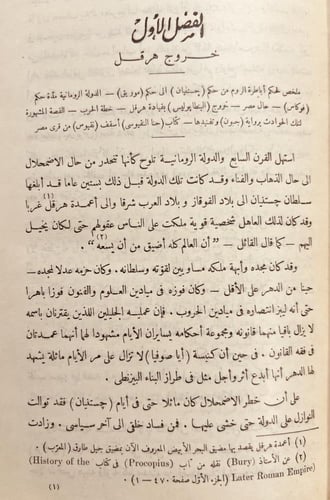 الفصل الأول
خروج هرقل
ملخص لحكم أباطرة الروم من حكم (جستنيان) الى حكم (موريق) - الدولة الرومانية مدّة حكم
(فوكاس) - حال مصر - خروج (البنطابوليس) بقيادة هرقل - خطة الحرب - القصة المشهورة
لتلك الحوادث برواية (جبون) وتفنيدها - كتاب (حنا النقيوسى) أسقف (نقيوس) من قرى مصر
استهل القرن السابع والدولة الرومانية تلوح كأنها تنحدر من حال الاضمحلال
الى حال الذهاب والفناء وقد كانت تلك الدولة قبل ذلك بستين عاما قد أبلغها
سلطان جستنيان الى بلاد القوقاز و بلاد العرب شرقا والى أعمدة هرقل غربا (١)
وقد كان لذلك العاهل شخصية قوية ملكت على الناس عقولهم حتى لكان يخيل
اليهم - كما قال القائل - " أن العالم كله أضيق من أن يسعه (٢) " .
وقد كان مجده وأبهة ملكه مساو بين لقوّته وسلطانه . وكان حزمه عدلا لمجده -
حينا من الدهر على الأقل - وكان فوزه فى ميادين العلوم والفنون فوزا باهرا
حتى أنه ليبز انتصاره فى ميادين الحروب . فان عمليه الجليلين اللذين يقترنان باسمه
لا يزال باقيا منهما قانونه ومجموعة أحكامه يسايران الأيام مشهودا لها أنهما عمدتان
فى فقه القانون . فى حين أن كنيسة (أيا صوفيا) لا تزال على مر الأيام ماثلة يشهد
لها الدهر أنها أبدع أثر وأجل مثل فى طراز البناء البيزنطى .
على أن خطر الاضمحلال كان ماثلا حتى فى أيام (جستنيان) فقد توالت
النوازل على الدولة حتى خشى عليها . فمن فساد خلق الى آخر سياسى . وزادت
(١) أعمدة هرقل يقصد بها مضيق البحر الأبيض المعروف الآن بمضيق جبل طارق (المعرّب) .
(٢) عن الأستاذ (Bury) نقله من تاب (Procopius) فى كتاب (History of the
Later Roman Empire) (الجزء الأول صفحة ٤٧٠ - ١) .
(١)